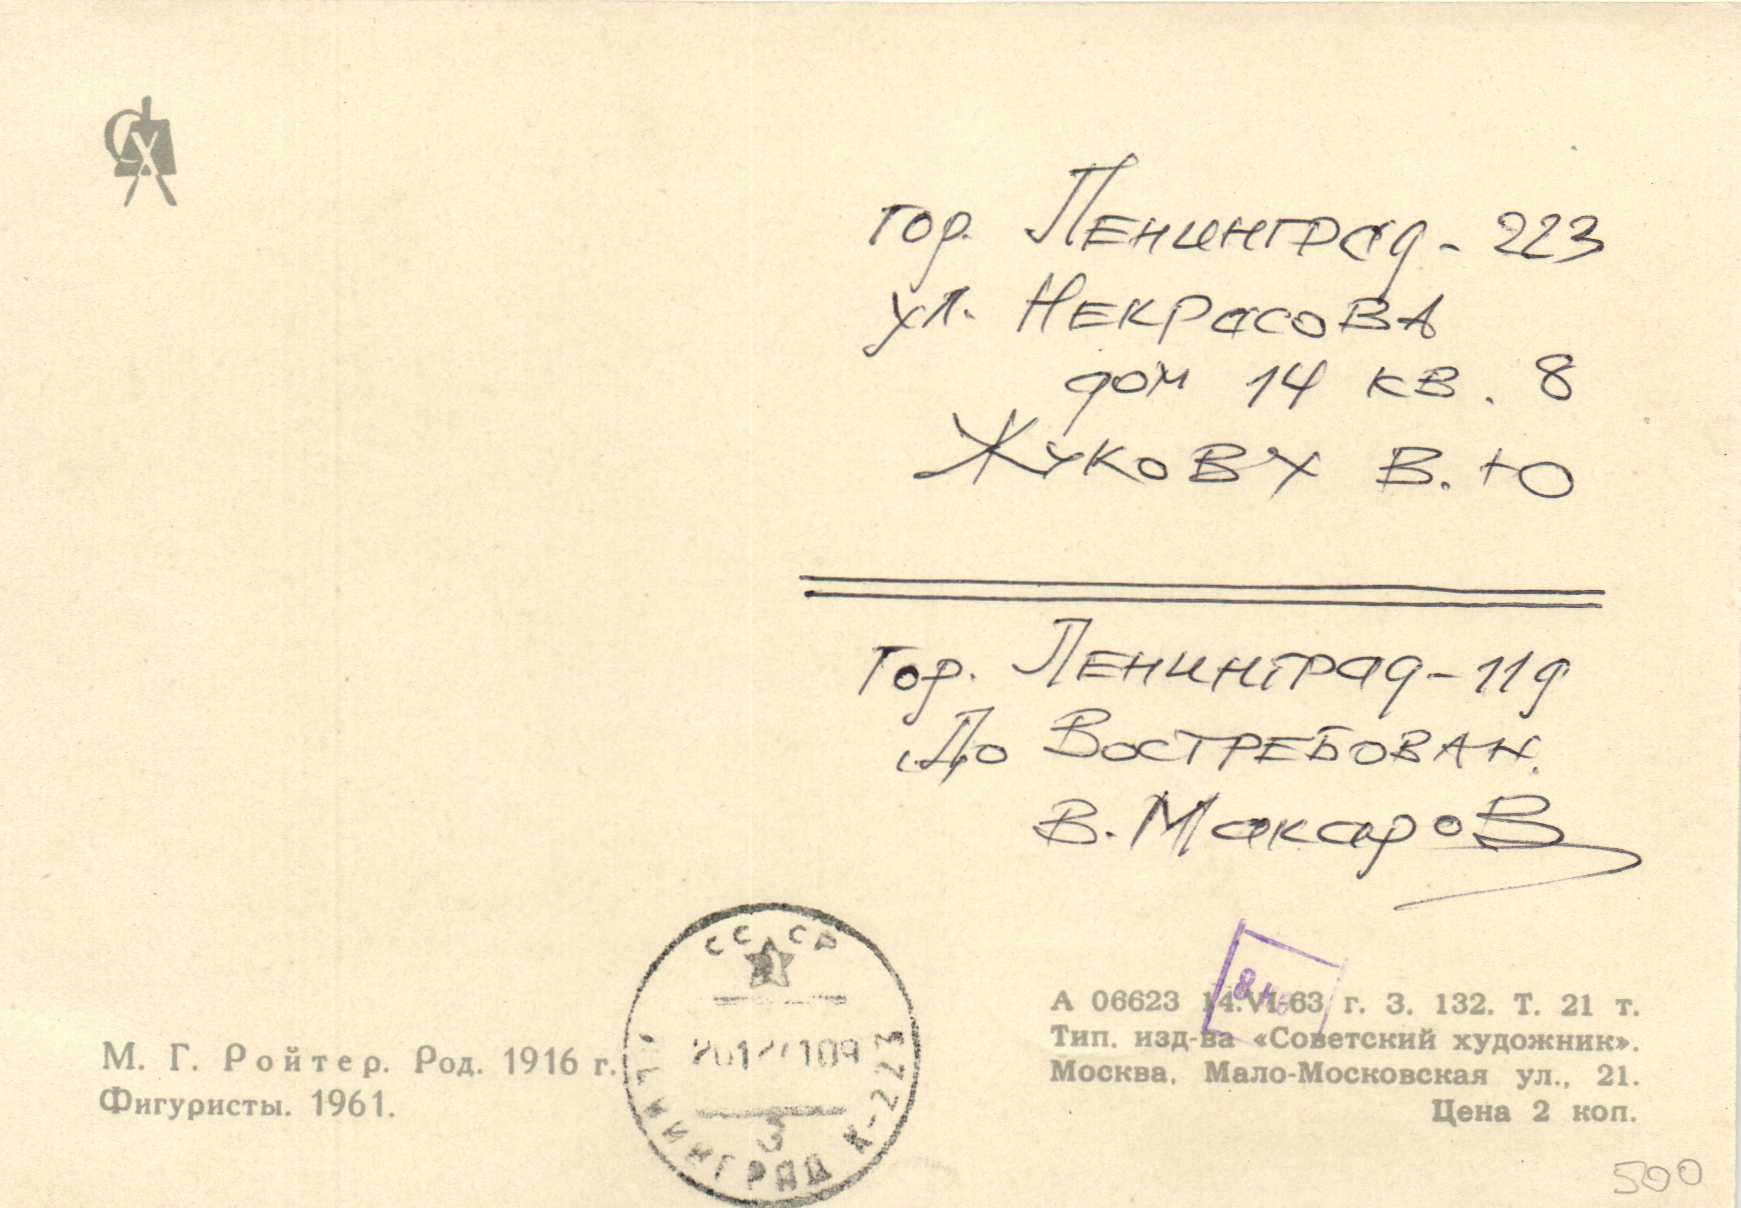 гор. Ленинград - 223
ул. Некрасова
дом 14 кв. 8
Жукову В. Ю
Гор. Ленинград - 11д
До Востребован.
В. Макаров
СССР
ЛЕНИНГРАД К-223
3
М. Г. Ройтер. Род. 1916 г.
Фигуристы. 1961.
А 06623 14.VI-63 г. З. 132. Т. 21 т.
Тип. изд-ва «Советский художник».
Москва, Мало-Московская ул., 21.
Цена 2 коп.
500